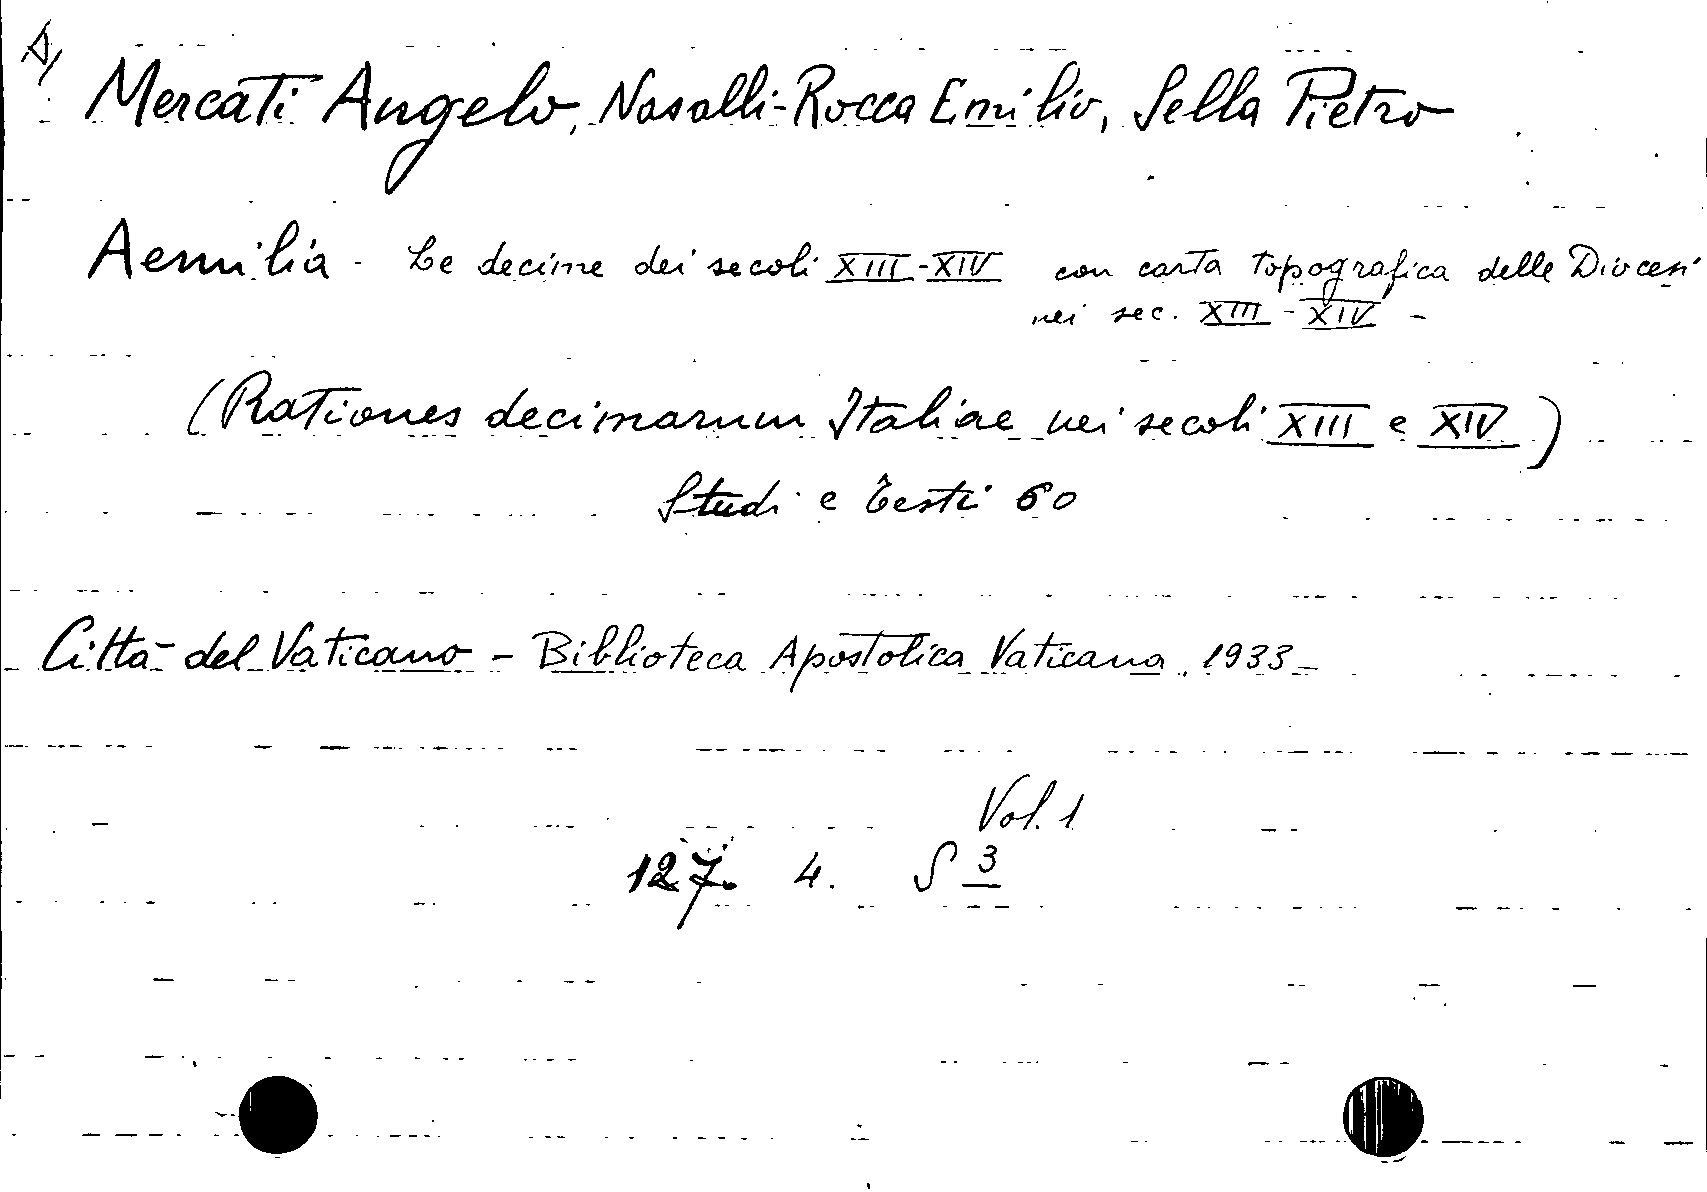 Mercati Angelo, Nasalli-Rocca Emilio, Sella Pietro
Aemilia - Le decime dei secoli XIII-XIV con carta topografica delle Diocesi
nei sec. XIII - XIV -
(Rationes decimarum Italiae nei secoli XIII e XIV)
Studi e testi 60
Città del Vaticano - Biblioteca Apostolica Vaticana, 1933-
Vol. 1
127. 4. S 3